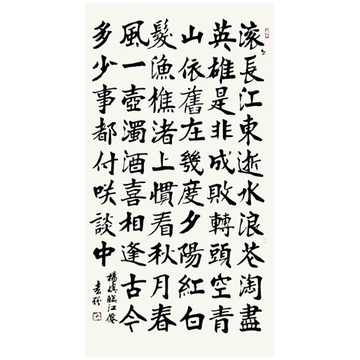 滚〻長江東逝水浪花淘盡
英雄是非成敗轉頭空青
山依舊在幾度夕陽紅白
髮漁樵渚上慣看秋月春
風一壺濁酒喜相逢古今
多少事都付咲談中
楊慎臨江僊